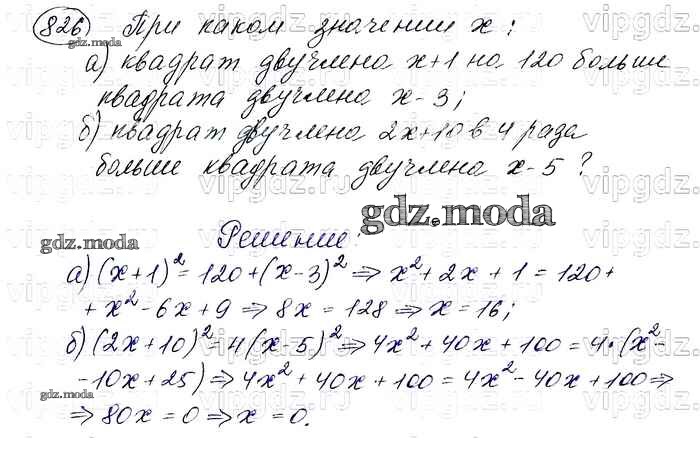 826) При каком значении x:
а) квадрат двучлена x+1 на 120 больше
квадрата двучлена x-3;
б) квадрат двучлена 2x+10 в 4 раза
больше квадрата двучлена x-5?
gdz.moda
gdz.moda
Решение:
gdz.moda
а) (x+1)²=120+(x-3)² ⇒ x²+2x+1=120+
+x²-6x+9 ⇒ 8x=128 ⇒ x=16;
б) (2x+10)²=4(x-5)² ⇒ 4x²+40x+100=4·(x²-
-10x+25) ⇒ 4x²+40x+100=4x²-40x+100 ⇒
gdz.moda
⇒ 80x=0 ⇒ x=0.
vipgdz.ru